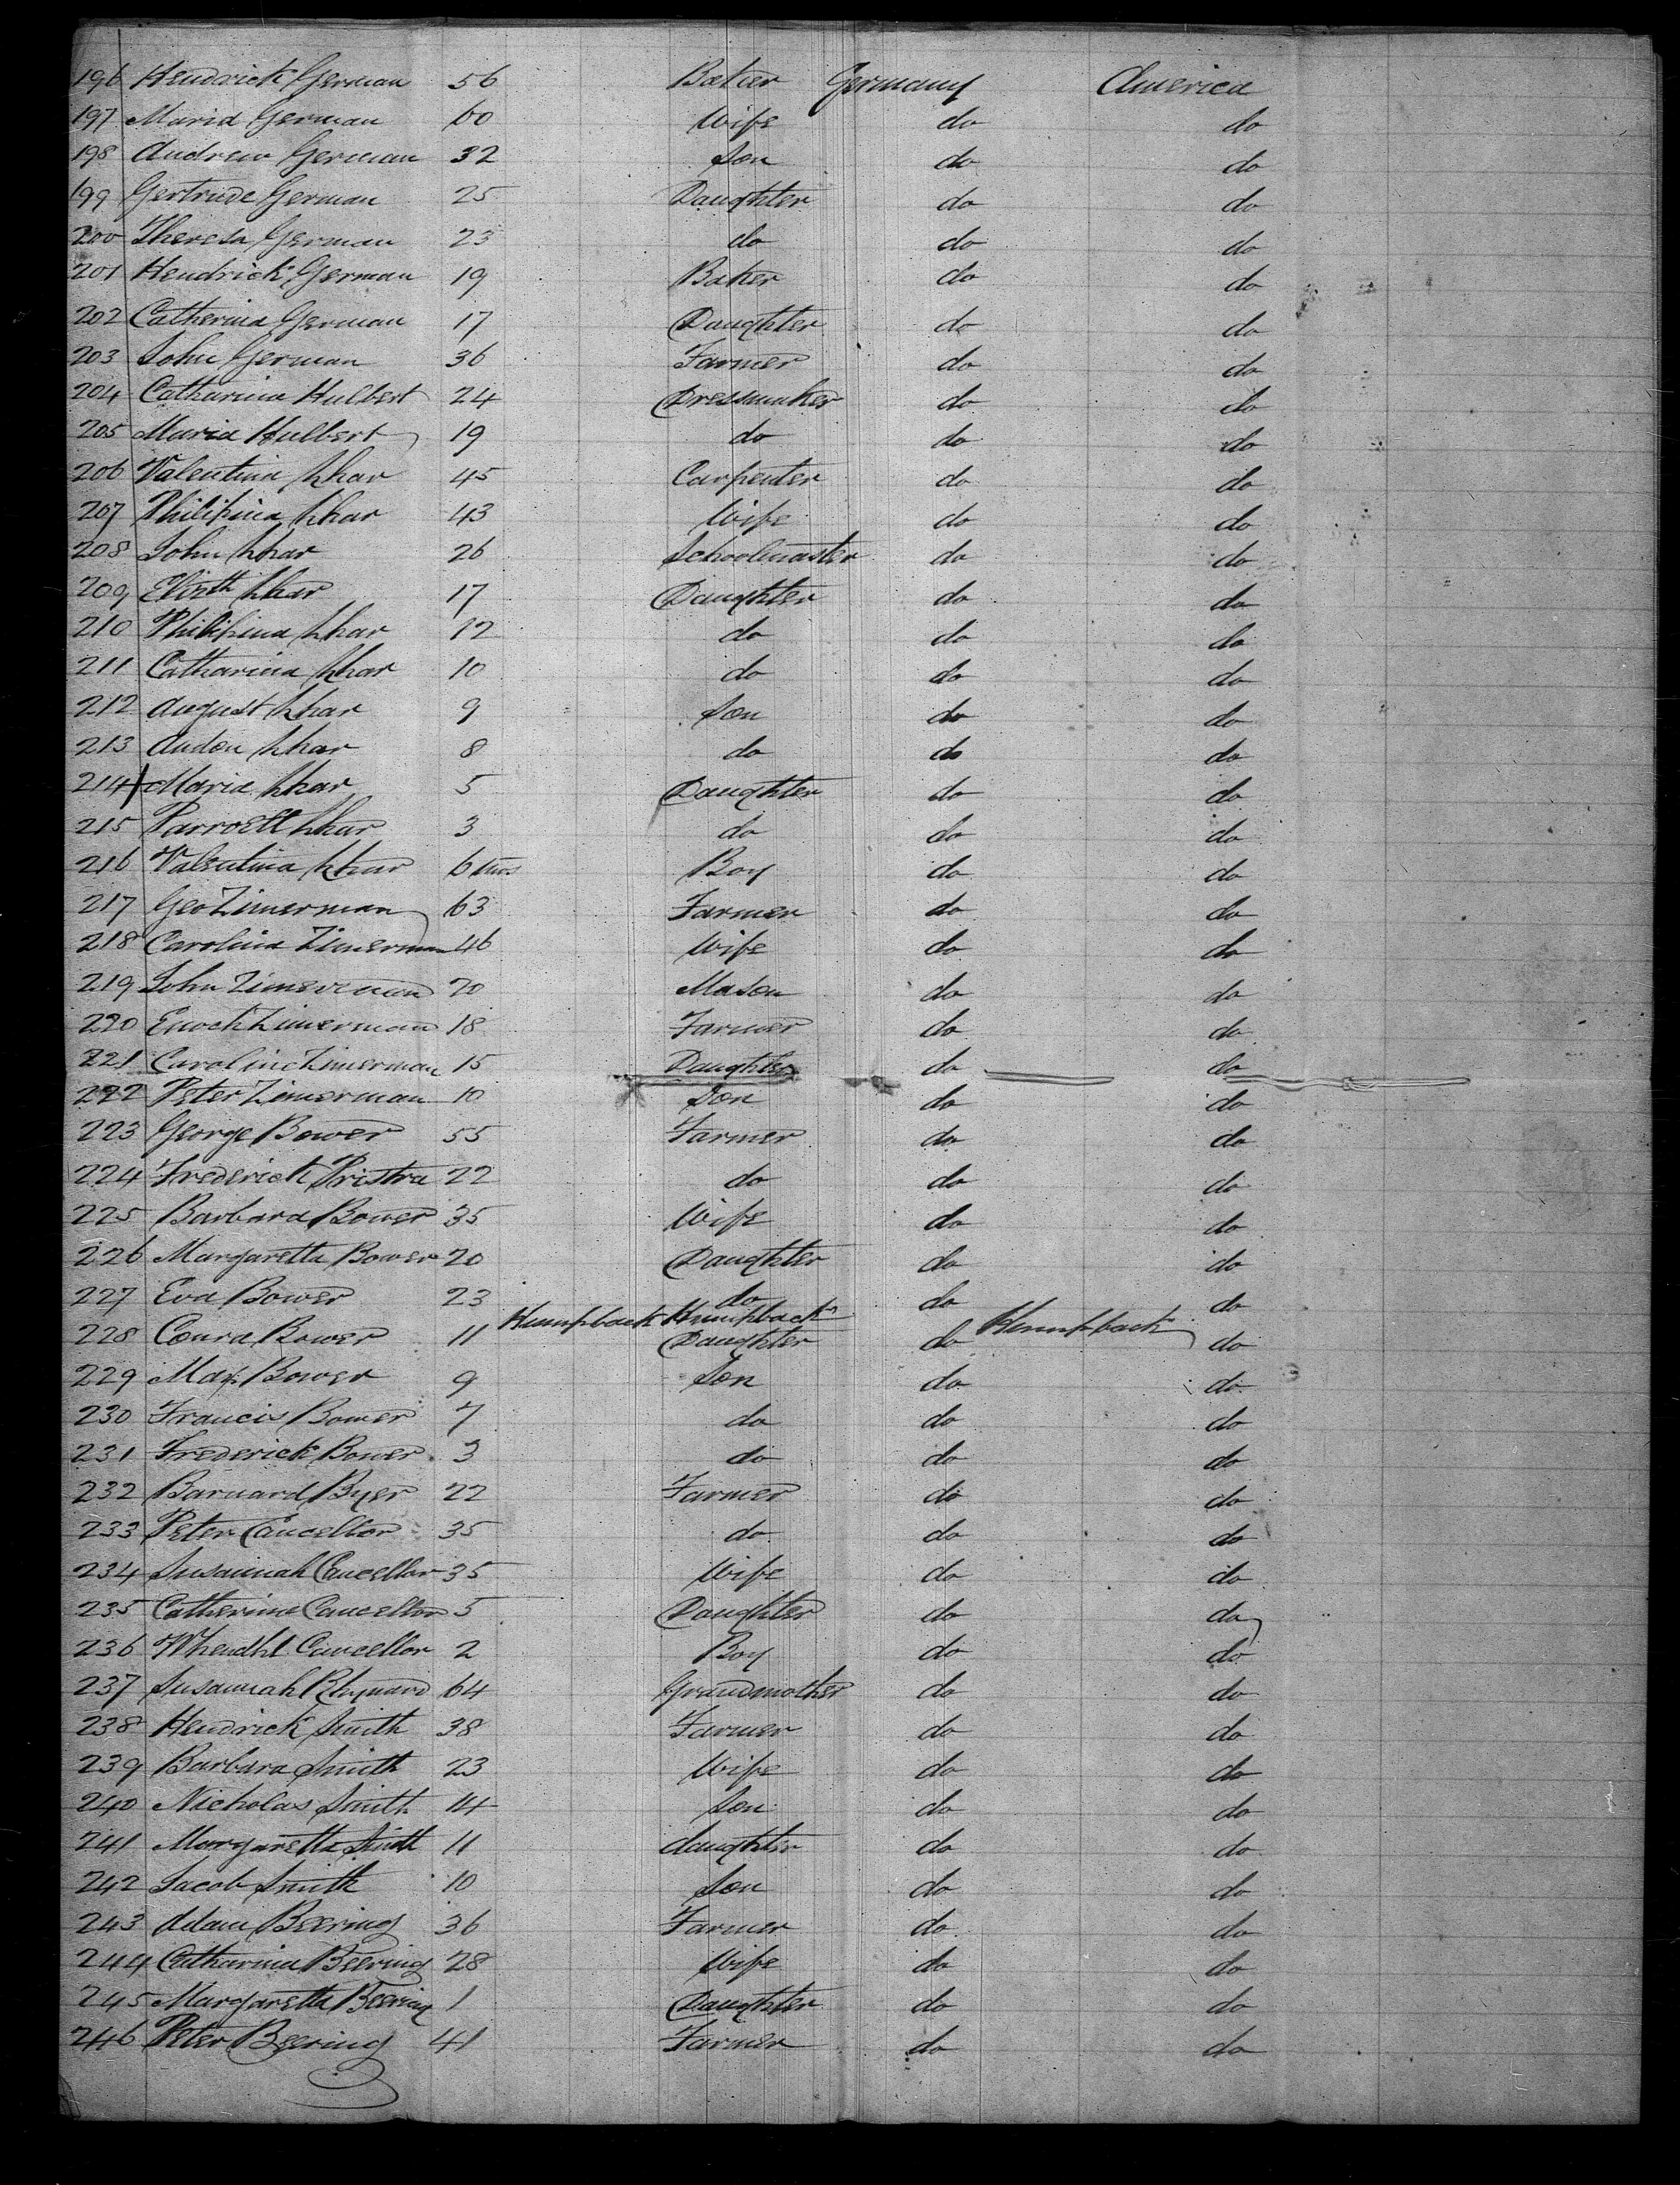 196 Hendrick German 56 Baker Germany America
197 Maria German 60 Wife do do
198 Andrew German 32 Son do do
199 Gertrude German 25 Daughter do do
200 Theresa German 23 do do do
201 Hendrick German 19 Baker do do
202 Catherina German 17 Daughter do do
203 John German 36 Farmer do do
204 Catharina Hulbert 24 Dressmaker do do
205 Maria Hulbert 19 do do do
206 Valentina 45 Carpenter do do
207 Philipina 43 Wife do do
208 John 26 Schoolmaster do do
209 Elizth 17 Daughter do do
210 Philipina 12 do do do
211 Catharina 10 do do do
212 August 9 Son do do
213 Andon 8 do do do
214 Maria 5 Daughter do do
215 3 do do do
216 Valentina 6 mos Boy do do
217 Geo Zimerman 63 Farmer do do
218 Carolina Zimerman 46 Wife do do
219 John Zimerman 20 Mason do do
220 Enoch Zimerman 18 Farmer do do
221 Caroline Zimerman 15 Daughter do do
222 Peter Zimerman 10 Son do do
223 George Bower 55 Farmer do do
224 Frederick Pristra 22 do do do
225 Barbara Bower 35 Wife do do
226 Margaretta Bower 20 Daughter do do
227 Eva Bower 23 do do do
Humpback Humpback Humpback
228 Conra Bower 11 Daughter do do
229 Max Bower 9 Son do do
230 Francis Bower 7 do do do
231 Frederick Bower 3 do do do
232 Barnard Byer 22 Farmer do do
233 Peter Cancellor 35 do do do
234 Susannah Cancellor 35 Wife do do
235 Catherine Cancellor 5 Daughter do do
236 Whendhl Cancellor 2 Boy do do
237 Susannah Rhynard 64 Grandmother do do
238 Hendrick Smith 38 Farmer do do
239 Barbara Smith 23 Wife do do
240 Nicholas Smith 14 Son do do
241 Margaretta Smith 11 daughter do do
242 Jacob Smith 10 Son do do
243 Adam Beering 36 Farmer do do
244 Catharina Beering 28 Wife do do
245 Margaretta Beering 1 Daughter do do
246 Peter Beering 41 Farmer do do